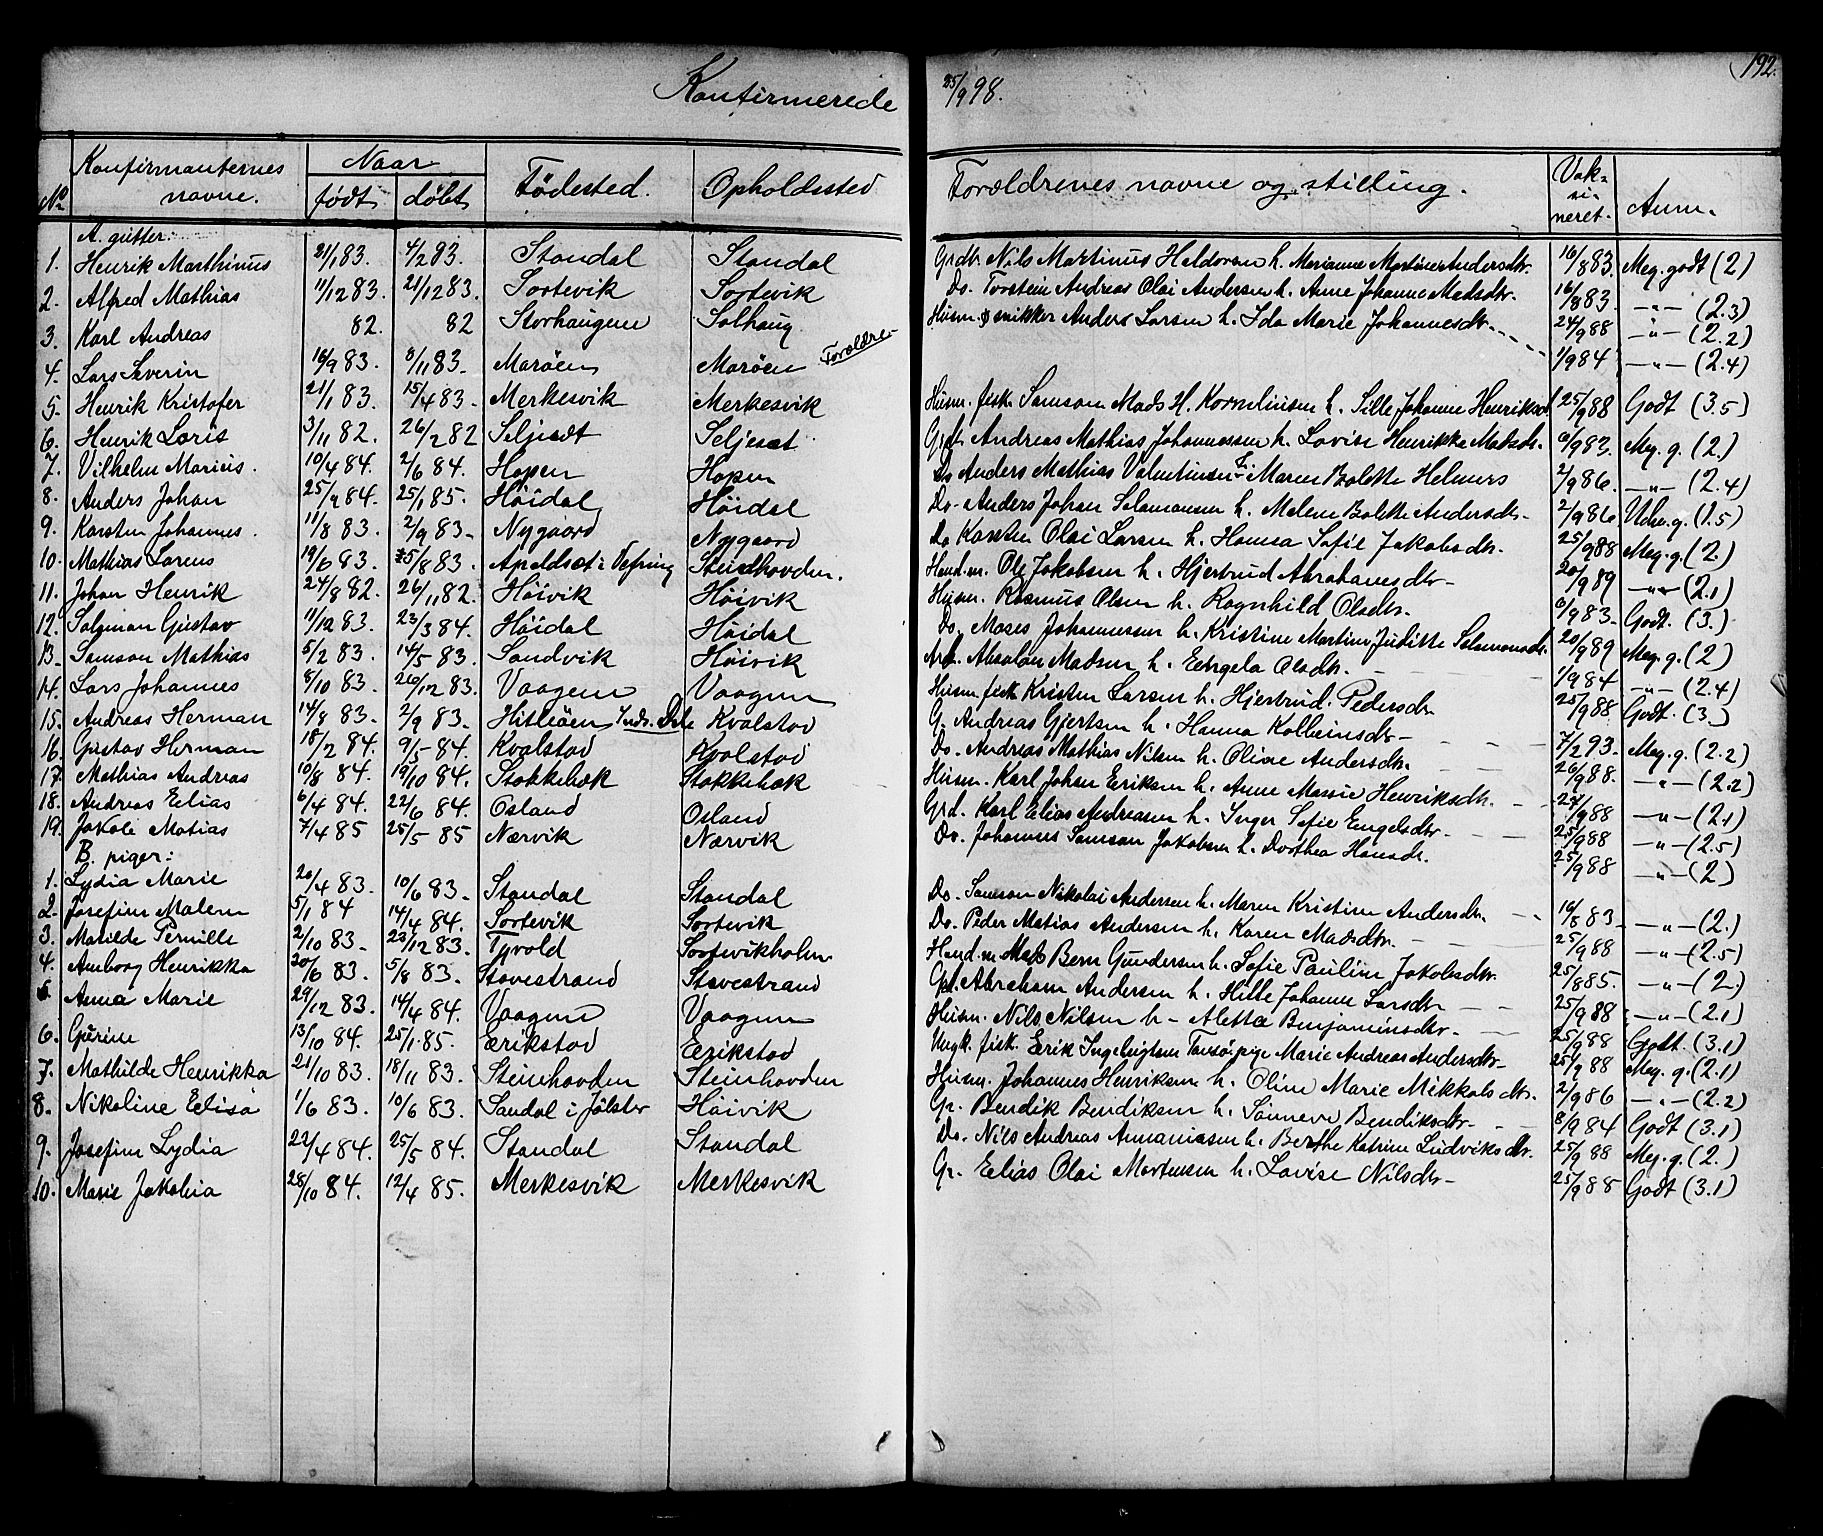 Konfirmerede 25/9 98.
192.
No Konfirmanternes navne. Naar født døbt Fødested. Opholdssted Forældrenes navne og stilling. Vaksineret. Anm.
A. gutter:
1. Henrik Marthinus 21/1 83. 4/2 83. Standal Standal
2. Alfred Mathias 11/12 83. 21/12 83. Sortevik Sortevik
3. Karl Andreas 82. 82 Storhaugene Solhaug
4. Lars Severin 16/9 83. 8/11 83. Marøen Marøen Forældre
5. Henrik Kristofer 21/1 83. 15/4 83. Merkesvik Merkesvik
6. Henrik Loris 3/11 82. 26/2 82 Seljesæt Seljesæt
7. Vilhelm Marius. 10/4 84. 2/6 84. Hopen Hopen
8. Anders Johan 25/9 84. 25/1 85. Höidal Höidal
9. Karsten Johannes. 11/8 83. 2/9 83. Nygaard Nygaard
10. Mathias Lorens 19/6 83. 5/8 83. Apeldsæt i Vefring Steinhovden.
11. Johan Henrik 24/8 82. 26/11 82. Höivik Höivik
12. Salomon Gustav 11/12 83. 23/3 84. Höidal Höidal
13. Samson Mathias 5/2 83. 14/5 83. Sandvik Höivik
14. Lars Johannes 8/10 83. 26/12 83. Vaagene Vaagene
15. Andreas Herman 14/8 83. 2/9 83. Hitleöen Kvalstad
16. Gustav Herman 18/2 84. 9/5 84. Kvalstad Kvalstad
17. Mathias Andreas 10/8 84. 19/10 84. Stokkebæk Stokkebæk
18. Andreas Eelias 6/4 84. 22/6 84. Osland Osland
19. Jakob Matias 7/4 85 25/5 85 Nærvik Nærvik
B. piger:
1. Lydia Marie 20/4 83. 10/6 83. Standal Standal
2. Josefine Malene 5/1 84 14/4 84. Sortevik Sortevik
3. Matilde Pernille 2/10 83. 23/12 83. Tyvold Sortevikholm
4. Amborg Henrikka 30/6 83. 5/8 83. Stavestrand Stavestrand
5. Anna Marie 29/12 83. 14/4 84. Vaagene Vaagene
6. Gurine 13/10 84. 25/1 85. Eerikstad Eerikstad
7. Mathilde Henrikka 21/10 83. 18/11 83. Steinhovden Steinhovden
8. Nikoline Eelisa 1/6 83. 10/6 83. Sandal i Jölster Höivik
9. Josefine Lydia 22/4 84. 25/5 84. Standal Standal
10. Marie Jakobia 28/10 84. 12/4 85. Merkesvik Merkesvik
Grdbr. Nils Martinus Haldorsen h. Marianne Martine Andersdtr. 16/8 83. Meg. godt (2)
Do. Torstein Andreas Olai Andersen h. Anne Johanne Madsdtr. 16/8 83. -"- (2.3)
Husm. & snikker Anders Larsen h. Ida Marie Johannesdtr. 24/9 88 -"- (2.2)
1/9 84 -"- (2.4)
Husm. fisk. Samson Mads H. Korneliusen h. Sille Johanne Henriksd. 25/9 88 Godt (3.5)
Grdb. Andreas Mathias Johannessen h. Lovise Henrikke Matsdr. 6/9 83. Meg. g. (2.)
Do Anders Mathias Valentinsen F. Maren Bolette Helmers 2/9 86. -"- (2.4)
Do. Anders Johan Salamonsen h. Malene Bolette Andersdtr. 2/9 86 Udm. g. (1.5)
Do Karsten Olai Larsen h. Hanna Sofie Jakobsdtr. 25/9 88 Meg. g. (2.)
Hand.m. Ole Jakobsen h. Hjertrud Abrahamsdtr. 20/9 89 -"- (2.1)
Husm. Rasmus Olsen h. Ragnhild Olsdtr. 6/9 83. Godt. (3.)
Do. Moses Johannessen h. Kristine Martine Juditte Salamonsd. 20/9 89 Meg. g. (2)
Arb. Absalon Madsen h. Eengela Olsdtr. 1/9 84 -"- (2.4)
Husm. fisk Kristen Larsen h. Hjertrud Pedersdtr. 25/9 88 Godt. (3.)
G. Andreas Gjertsen h. Hanna Kolbeinsdtr. 7/2 93. Meg. g. (2.2)
Do. Andreas Mathias Nilsen h. Oline Andersdtr. 26/9 88. -"- (2.2)
Husm. Karl Johan Eeriksen h. Anne Marie Henriksdtr. 24/9 88 -"- (2.1)
Grd. Karl Eelias Andreasen h. Inger Sofie Eengelsdtr. 25/9 88 -"- (2.5)
Do. Johannes Samson Jakobsen h. Dorthea Hansdr. 25/9 88 -"- (2)
Do. Samson Nikolai Andersen h. Maren Kristine Andersdtr. 16/8 83 -"- (2.)
Do. Peder Matias Andersen h. Karen Madsdtr. 25/9 88 -"- (2.5)
Hand.m. Mads Bern Gundersen h. Sofie Pauline Jakobsdtr. 25/8 85. -"- (2.)
Gbr. Abraham Andersen h. Hille Johanne Larsdtr 25/9 88 -"- (2.1)
Husm. Nils Nilsen h. Aletta Benjaminsdtr. 25/9 88 Godt. (3.1)
Ungk. fisk. Eerik Ingebrigtsen Taus og pige Marie Andreas Andersdtr. 25/9 88 Meg. g. (2.1)
Husm. Johannes Henriksen h. Oline Marie Mikkalsdtr. 2/9 86 -"- (2.2)
Gr. Bendik Bendiksen h. Sönneve Bendiksdtr. 8/9 84 Godt (3.1)
Do. Nils Andreas Annaniassen h. Berthe Katrine Ludviksdtr. 25/9 88 Meg. g. (2.)
Gr. Eelias Olai Martensen h. Lovise Nilsdtr. 25/9 88 Godt (3.1)